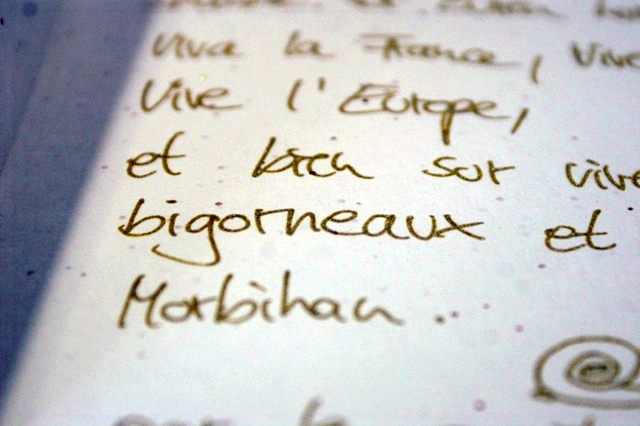 Viva la France, Vive
Vive l'Europe,
et bien sur vive
bigorneaux et
Morbihan.